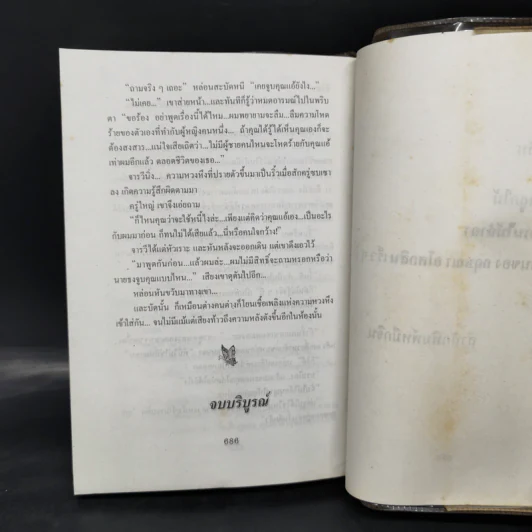 "ถามจริง ๆ เถอะ" หล่อนสะบัดหนี "เคยจูบคุณแอ้ยังไง..."
"ไม่เคย..." เขาส่ายหน้า...และทันทีก็รู้ว่าหมดอารมณ์ไปในพริบ
ตา "ขอร้อง อย่าพูดเรื่องนี้ได้ไหม...ผมพยายามจะลืม...ลืมความโหด
ร้ายของตัวเองที่ทำกับผู้หญิงคนหนึ่ง... ถ้าคุณได้รู้ได้เห็นคุณเองก็จะ
ต้องสงสาร...แน่ใจเสียเถิดว่า...ไม่มีผู้ชายคนไหนจะโหดร้ายกับคุณแอ้
เท่าผมอีกแล้ว ตลอดชีวิตของเธอ..."
จารวีนิ่ง... ความหวงหึงที่ปรายตัวขึ้นมาเป็นริ้วเมื่อสักครู่ซบเซา
ลง เกิดความรู้สึกผิดตามมา
ครู่ใหญ่ เขาจึงเอ่ยถาม
"ก็ไหนคุณว่าจะใช้หนี้ไงล่ะ...เพียงแต่คิดว่าคุณแอ้เธอ...เป็นอะไร
กับผมมาก่อน ก็ทนไม่ได้เสียแล้ว...นี่หรือคนใจกว้าง!"
จารวีได้แต่หัวเราะ และหันหลังจะออกเดิน แต่เขาดึงเอวไว้
"มาพูดกันก่อน...แล้วผมล่ะ...ผมไม่มีสิทธิ์จะถามหรอกหรือว่า
นายธงจูบคุณแบบไหน..." เสียงเขาดุดันไปอีก
หล่อนหันขวับมาทางเขา...
และบัดนั้น ก็เหมือนต่างคนต่างก็โยนเชื้อเพลิงแห่งความหวงหึง
เข้าใส่กัน... จนไม่มีแม้แต่เสียงห้าวถึงความหลังดังขึ้นอีกในห้องนั้น
จบบริบูรณ์
686